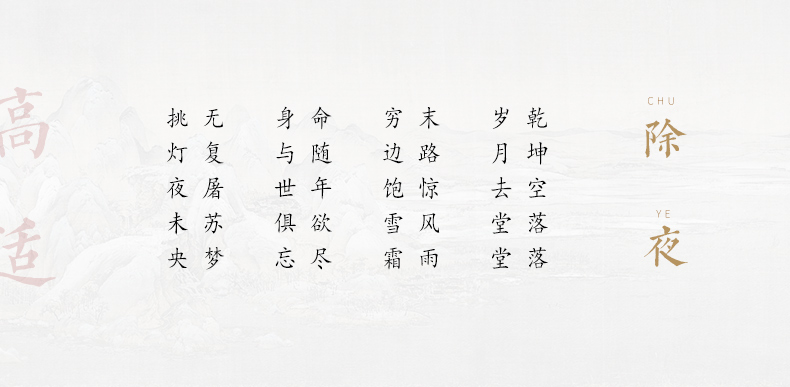 CHU
除
YE
夜
乾坤空落落
岁月去堂堂
末路惊风雨
穷边饱雪霜
命随年欲尽
身与世俱忘
无复屠苏梦
挑灯夜未央
高适